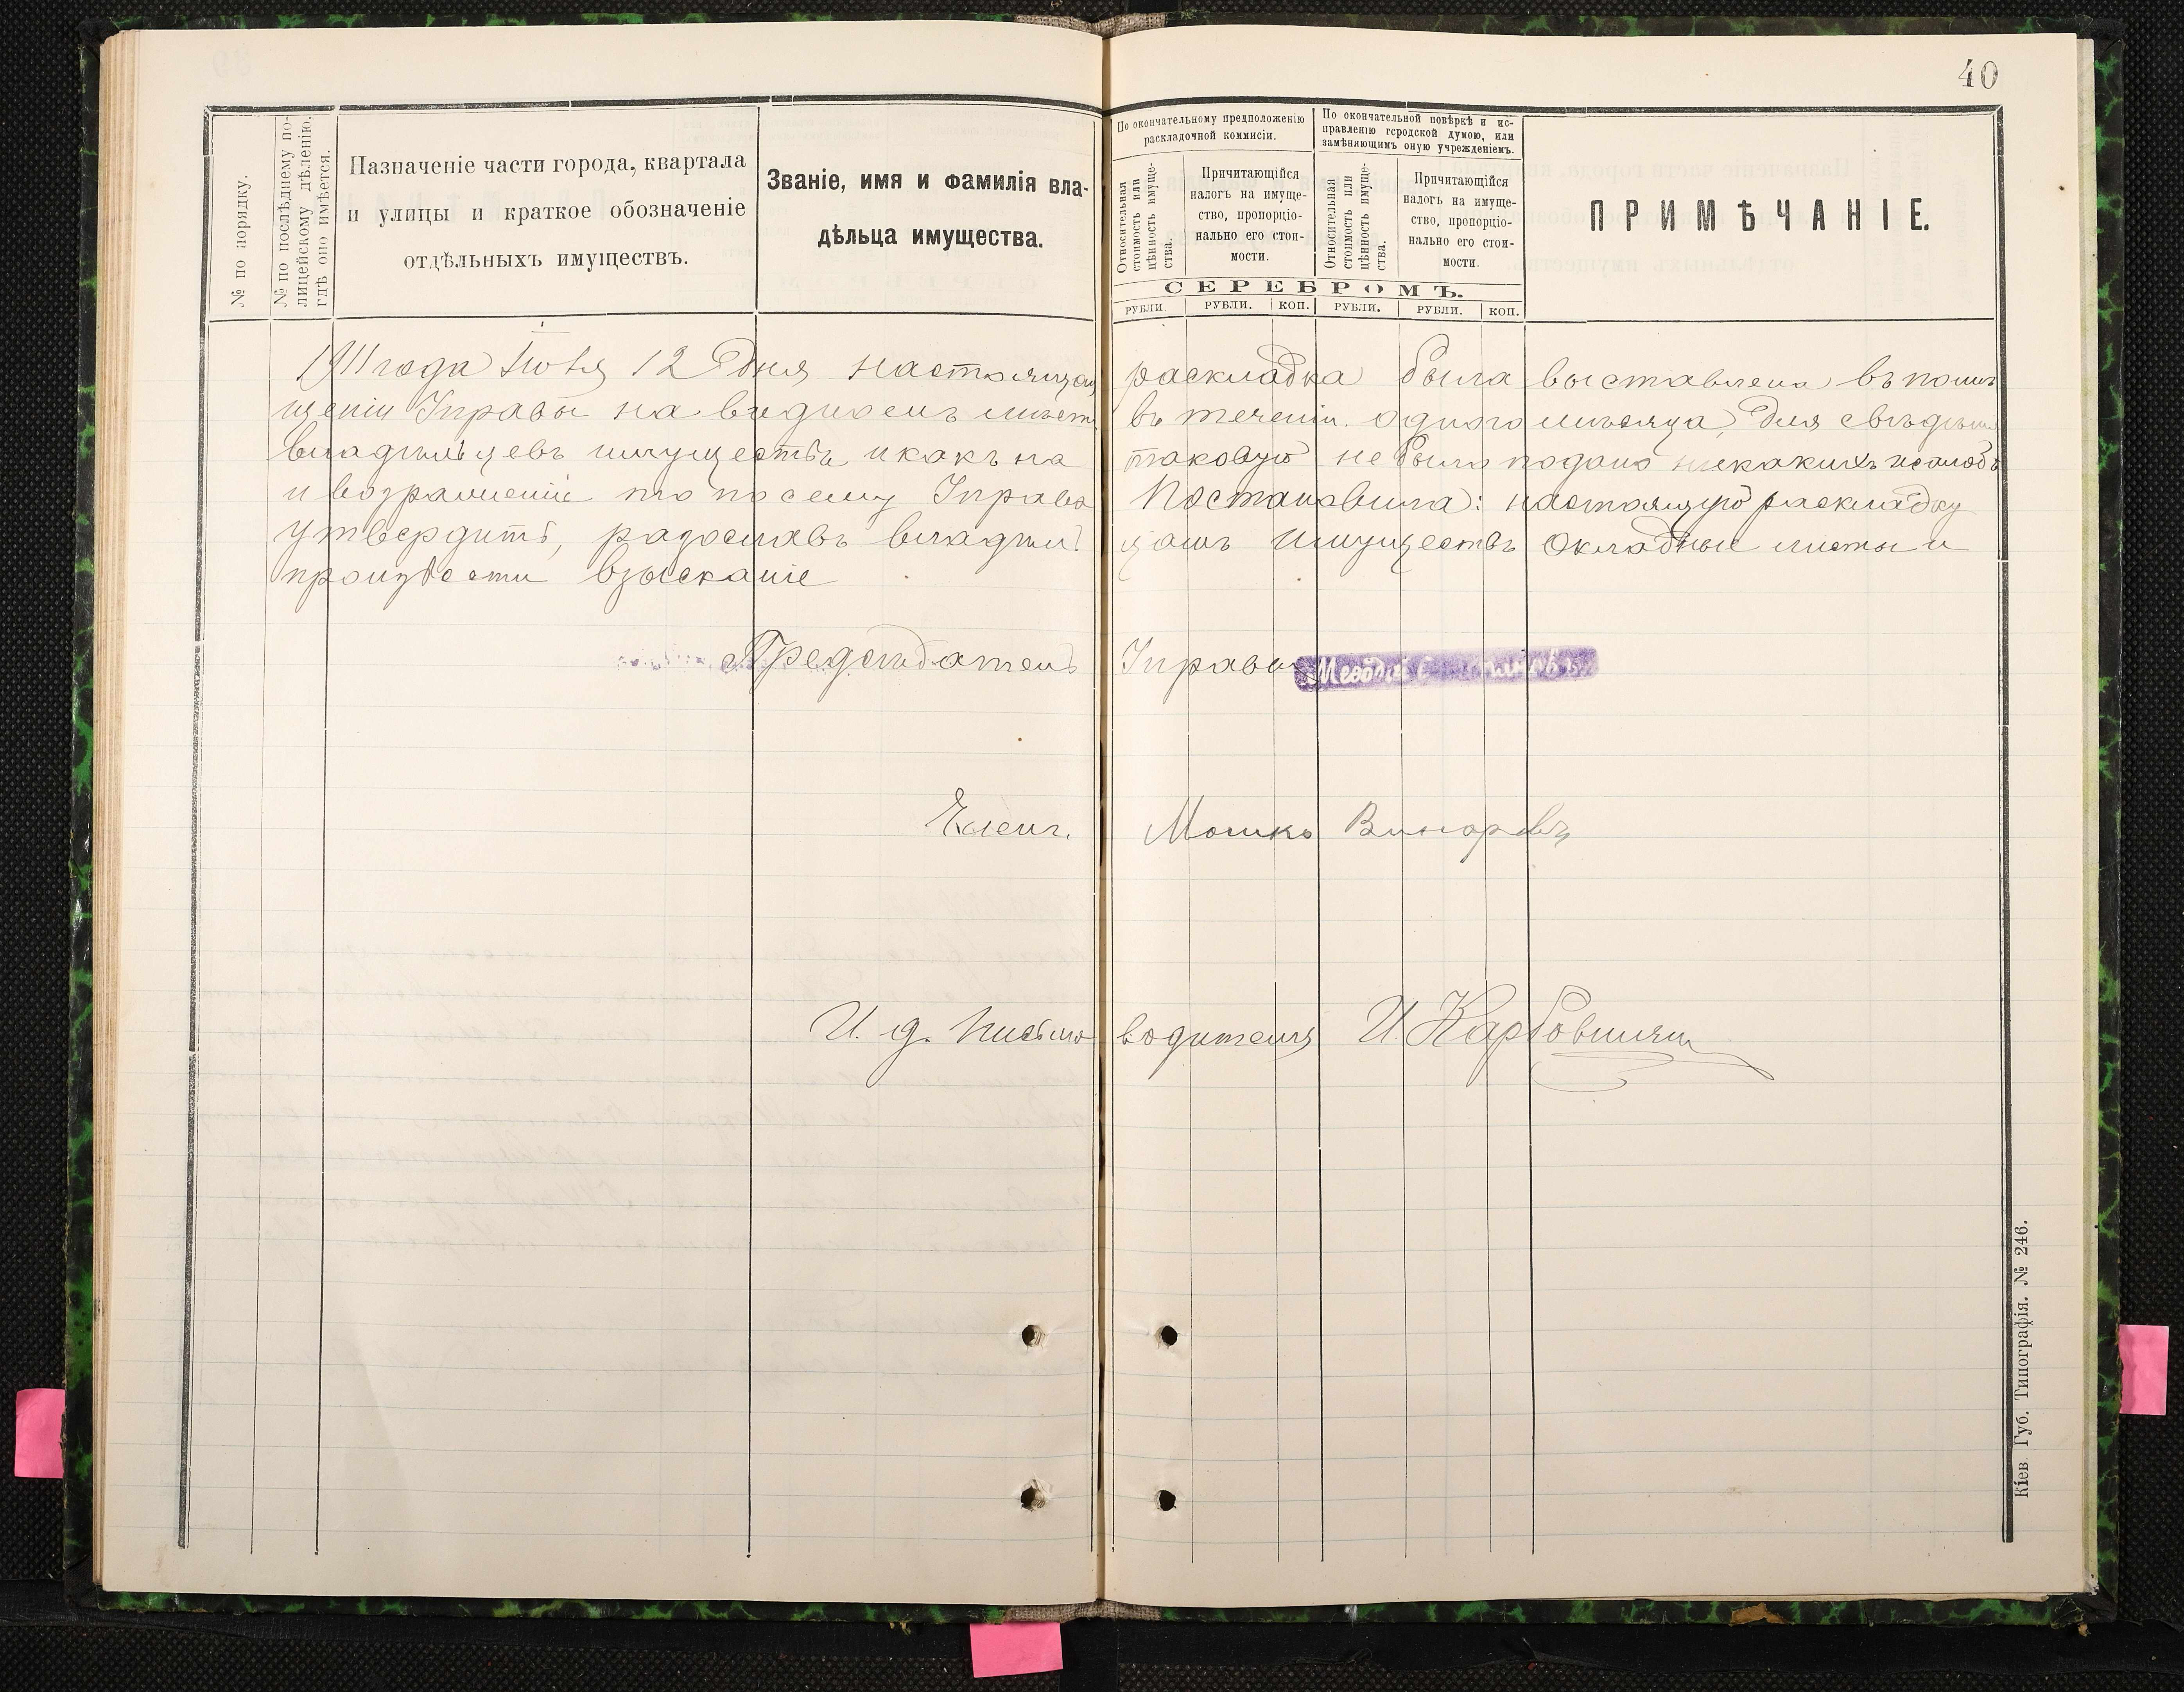 40
№ по порядку.
№ по послѣднему по-
лицейскому дѣленію,
гдѣ оно имѣется.
Назначеніе части города, квартала
и улицы и краткое обозначеніе
отдѣльныхъ имуществъ.
Званіе, имя и фамилія вла-
дѣльца имущества.
По окончательному предположенію
раскладочной коммисіи.
Относительная
стоимость или
цѣнность имуще-
ства.
Причитающійся
налогъ на имуще-
ство, пропорціо-
нально его стои-
мости.
По окончательной повѣркѣ и ис-
правленію городской думою, или
замѣняющимъ оную учрежденіемъ.
Относительная
стоимость или
цѣнность имуще-
ства.
Причитающійся
налогъ на имуще-
ство, пропорціо-
нально его стои-
мости.
СЕРЕБРОМЪ.
РУБЛИ. РУБЛИ. КОП. РУБЛИ. РУБЛИ. КОП.
ПРИМѢЧАНІЕ.
1911 года 12 дня настоящая раскладка была выставлена въ помѣ
щеніи Управы на видномъ мѣстѣ въ теченіи одного мѣсяца, для свѣдѣнія
владѣльцевъ имуществъ и какъ на таковую не было подано никакихъ жалобъ
и возраженіи то по сему Управа Постановила: настоящую раскладку
утвердить, разославъ владѣль цамъ имуществъ окладные листы и
произвести взысканіе
Предсѣдатель Управы
Членъ. Мошко Винаръ
И. д. Письмо водителя И.
Кіев. Губ. Типографія. № 246.